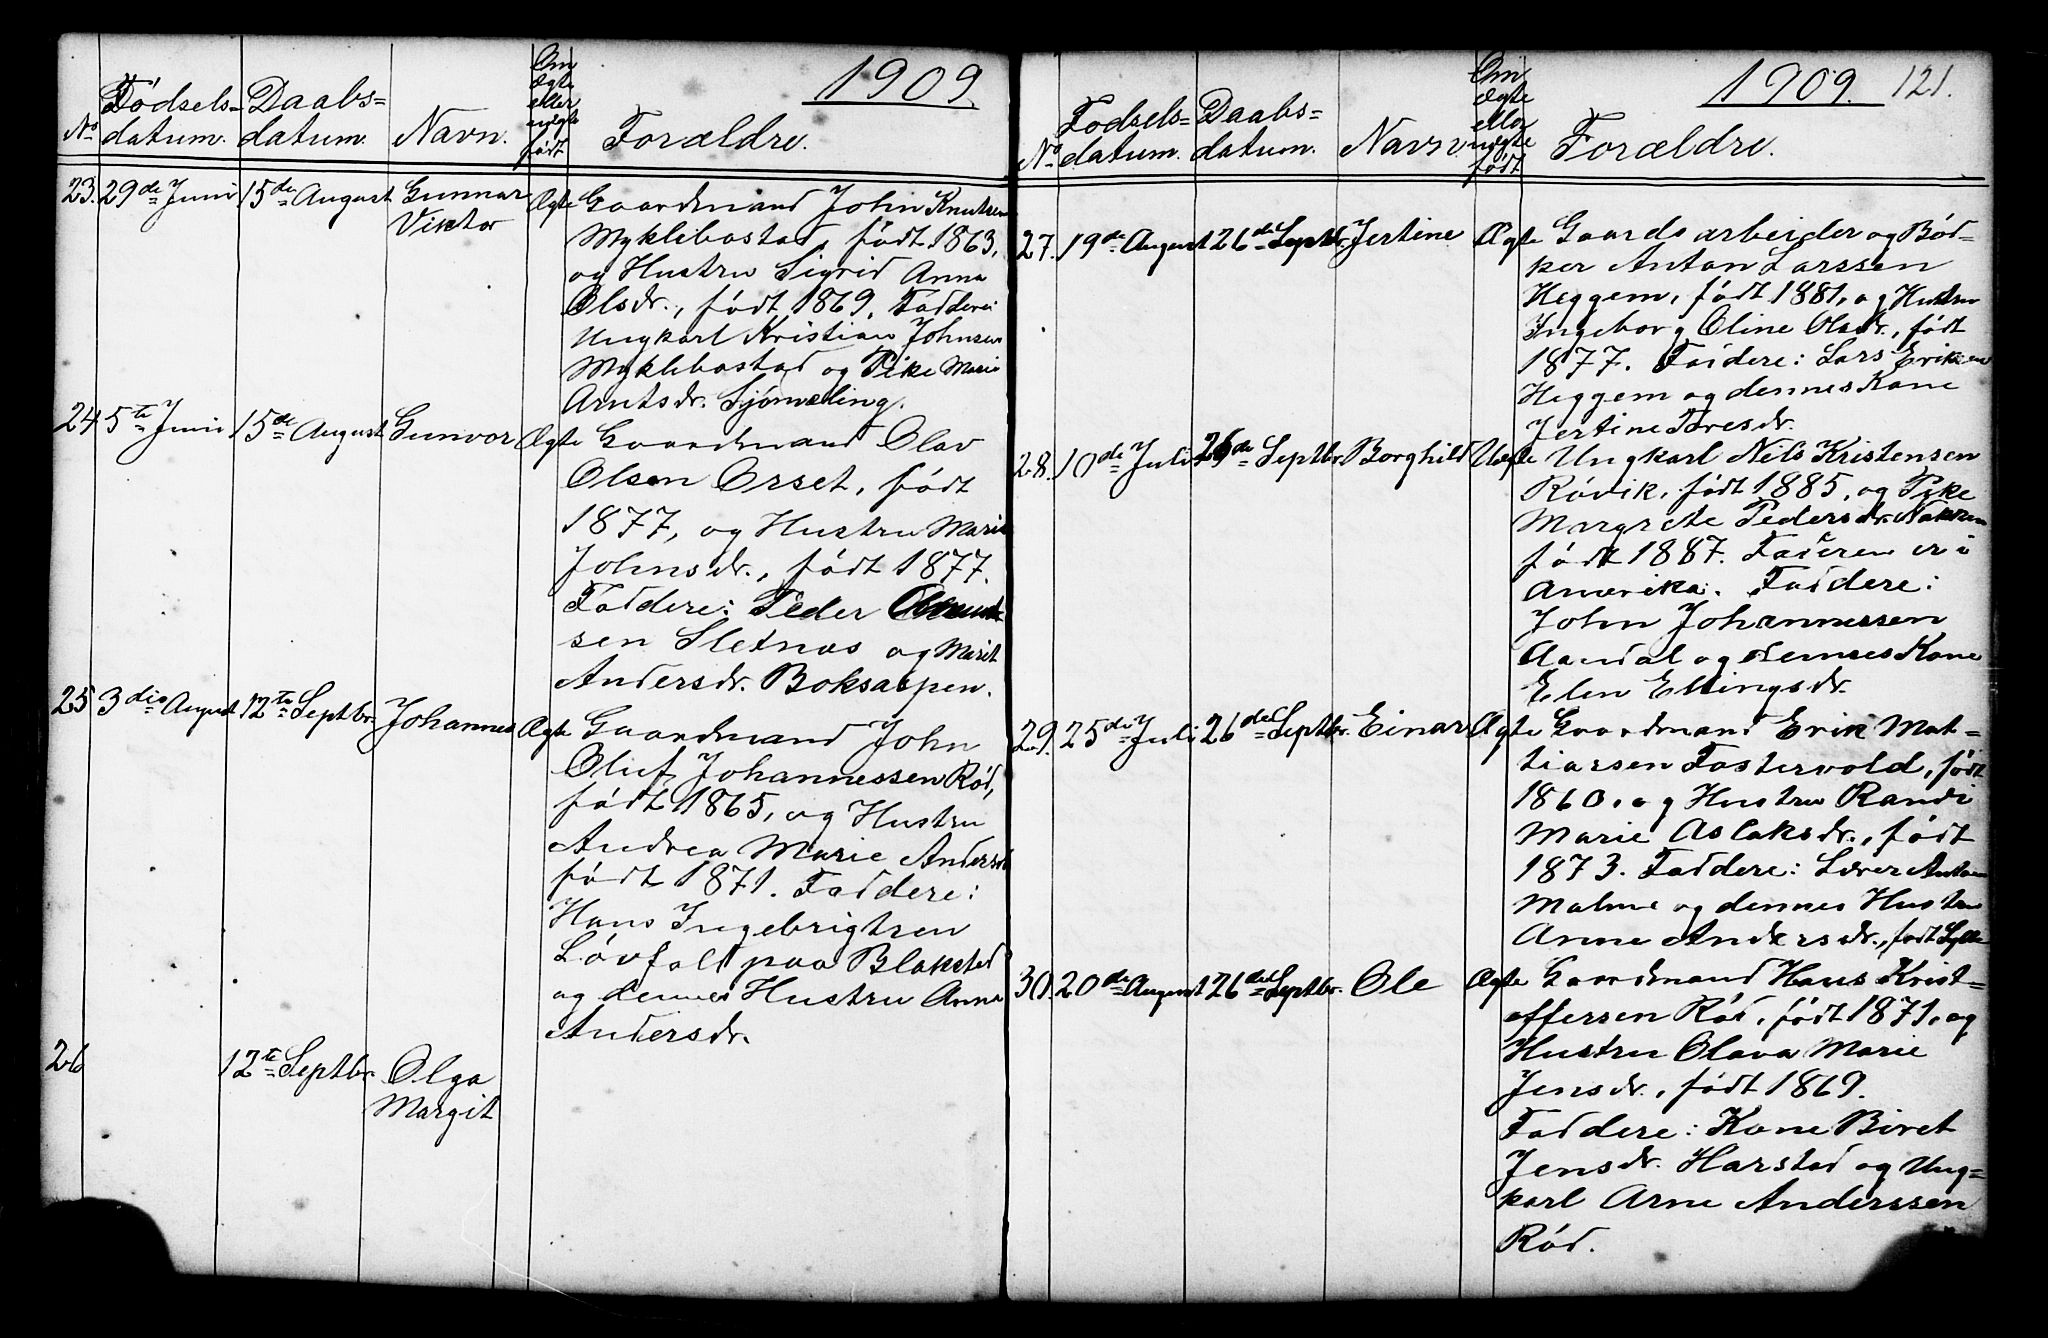 1909.
No Fødsels-datum. Daabs-datum. Navn. Om ægte eller uægte født Forældre.
23. 29de Juni 15de August Gunnar Viktor Ægte Gaardmand John Knutsen
Myklebostad, født 1863,
og Hustru Sigrid Anna
Olsdr., født 1869. Faddere:
Ungkarl Kristian Johnsen
Myklebostad og Pike Marie
Arntsdr. Sjømæling.
24 5te Juni 15de August Gunvor Ægte Gaardmand Olav
Olsen Orset, født
1877, og Hustru Marit
Johnsdr., født 1877.
Faddere: Peder
sen Sletnæs og Marit
Andersdr. Boksaspen.
25 3die August 12te Septbr. Johannes Ægte Gaardmand John
Oluf Johannessen Rød,
født 1865, og Hustru
Andrea Marie Andersdr
født 1871. Faddere:
Hans Ingebrigtsen
Løvfall paa Blakstad
og dennes Hustru Anna
Andersdr.
26 12te Septbr. Olga
Margit
1909. 121.
No Fødsels-datum. Daabs-datum. Navn Om ægte eller uægte født Forældre.
27. 19de August 26de Septbr. Jertine Ægte Gaardsarbeider og Bød-
ker Anton Larssen
Heggem, født 1881, og Hustru
Ingeborg Oline Olsdr., født
1877. Faddere: Lars Eriksen
Heggem og dennes Kone
Jertine Toresdr.
28. 10de Juli 26de Septbr. Borghild Uægte Ungkarl Nils Kristensen
Røvik, født 1885, og Pike
Margrete Pedersdr.
født 1887. Faderen er i
Amerika. Faddere:
John Johannessen
Aandal og dennes Kone
Elen Ellingsdr.
29. 25de Juli 26de Septbr. Einar Ægte Gaardmand Erik Mat-
tiassen Fostervold, født
1860, og Hustru Randi
Marie Aslaksdr., født
1873. Faddere: Lærer Anton
Malme og dennes Hustru
Anne Andersdr., født Sylte
30. 20de August 26de Septbr. Ole Ægte Gaardmand Hans Krist-
offersen Rød, født 1871, og
Hustru Olava Marie
Jensdr., født 1869.
Faddere: Kone Beret
Jensdr. Harstad og Ung-
karl Arne Anderssen
Rød.